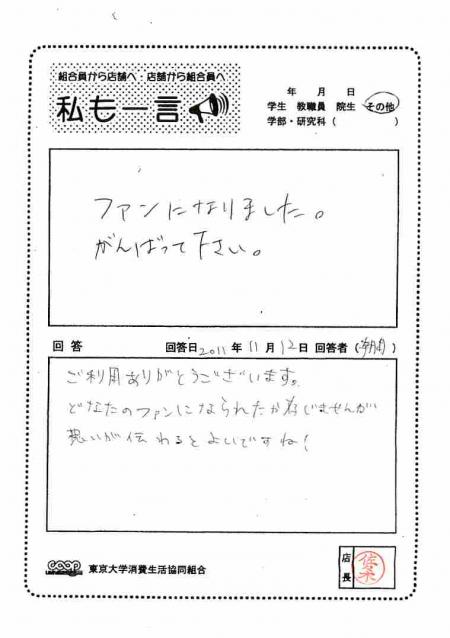 組合員から店舗へ 店舗から組合員へ
私も一言
年 月 日
学生 教職員 院生 その他
学部・研究科( )
ファンになりました。
がんばって下さい。
回答
回答日 2011 年 11 月 12 日 回答者( )
ご利用ありがとうございます。
どなたのファンになられたか存じませんが
想いが伝わるとよいですね!
coop
東京大学消費生活協同組合
店長